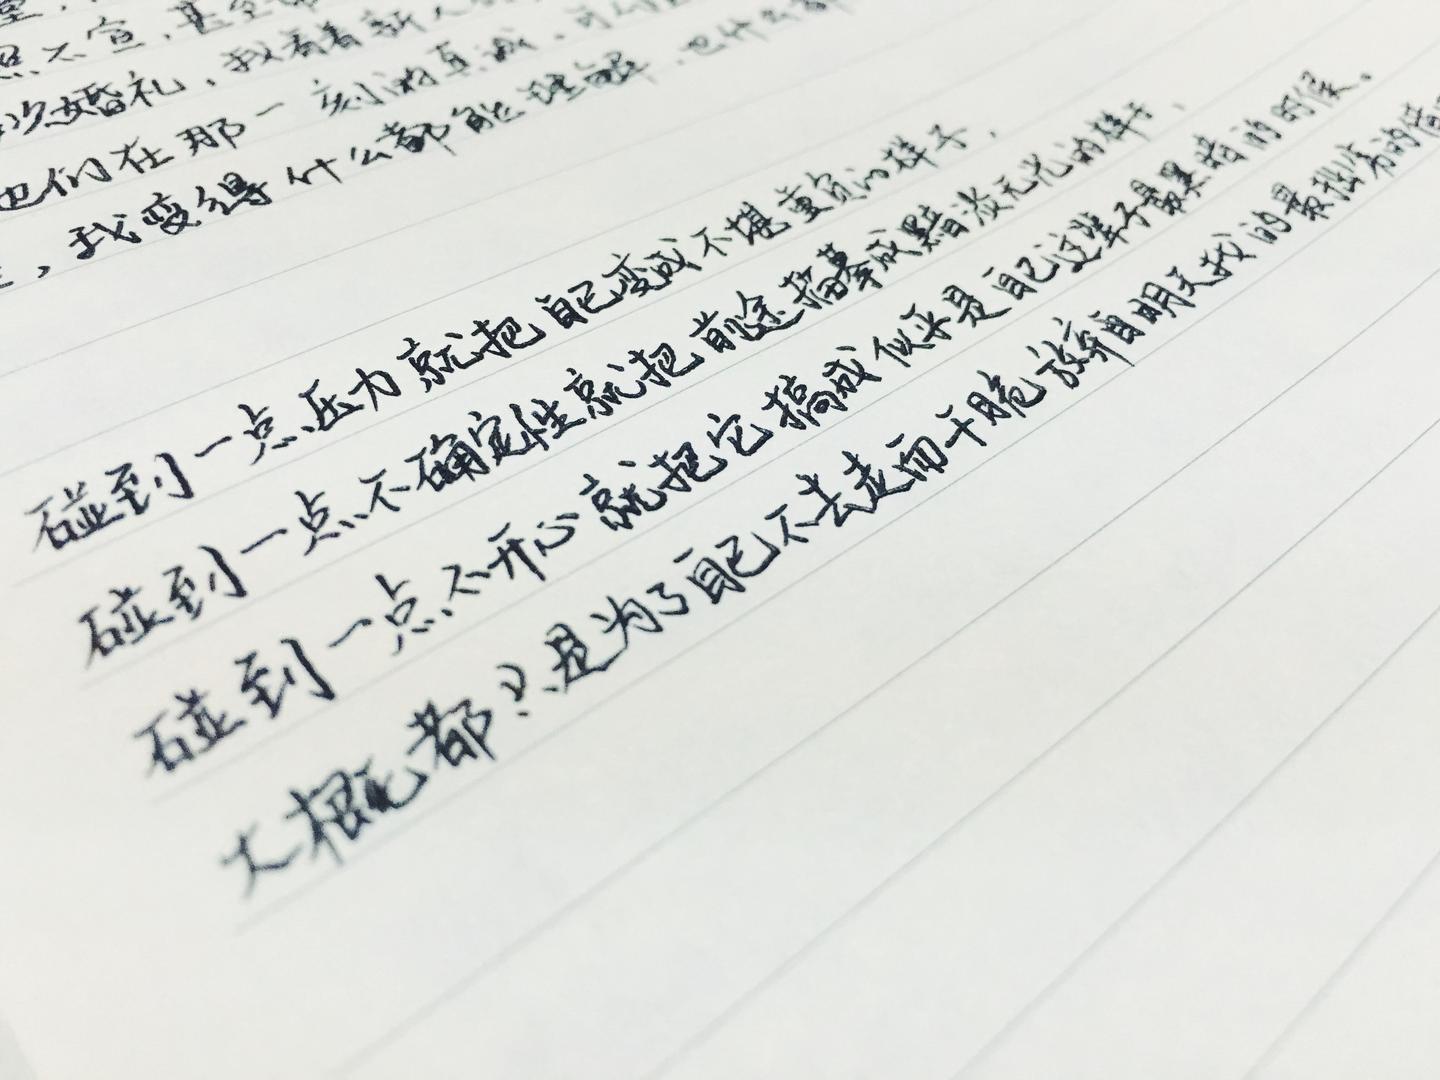 照不宣，甚至
次婚礼，我看着新人
他们在那一刻的真诚，可以
，我变得什么都能理解，也什么都
碰到一点压力就把自己变成不堪重负的样子，
碰到一点不确定性就把前途描摹成黯淡无光的样子，
碰到一点不开心就把它搞成似乎是自己这辈子最黑暗的时候。
大概都只是为了自己不去走而干脆放弃自明天我的最拙劣的借